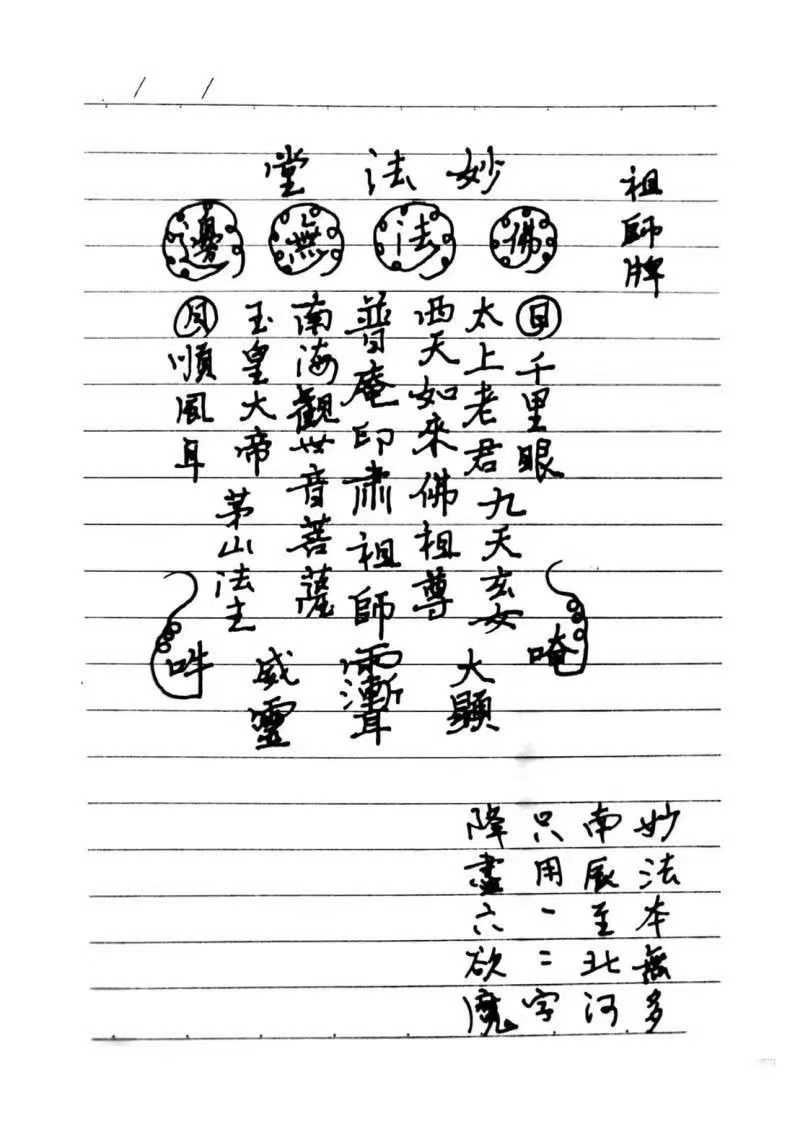 祖師牌
妙法堂
佛法無邊
日千里眼
太上老君
九天玄女
西天如來佛祖尊
普庵印肅祖師
南海觀世音菩薩
玉皇大帝
茅山法主
月順風耳
唵
大顯
威靈
吽
妙法本無多
南辰至北河
只用一二字
降盡六欲魔